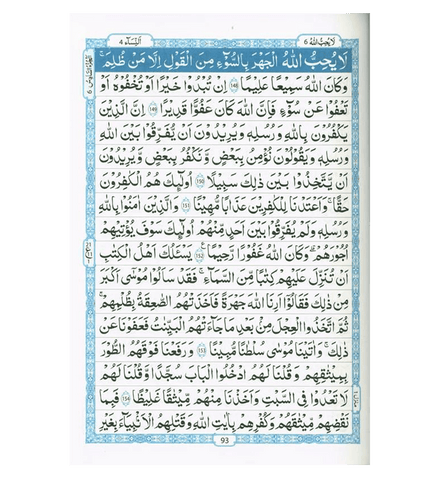 لَا يُحِبُّ اللّٰهُ 6
اَلنِّسَآء 4
لَا يُحِبُّ اللّٰهُ الْجَهْرَ بِالسُّوْٓءِ مِنَ الْقَوْلِ اِلَّا مَنْ ظُلِمَ ؕ
وَكَانَ اللّٰهُ سَمِيْعًا عَلِيْمًا ﴿148﴾ اِنْ تُبْدُوْا خَيْرًا اَوْ تُخْفُوْهُ اَوْ
تَعْفُوْا عَنْ سُوْٓءٍ فَاِنَّ اللّٰهَ كَانَ عَفُوًّا قَدِيْرًا ﴿149﴾ اِنَّ الَّذِيْنَ
يَكْفُرُوْنَ بِاللّٰهِ وَرُسُلِهٖ وَيُرِيْدُوْنَ اَنْ يُّفَرِّقُوْا بَيْنَ اللّٰهِ
وَرُسُلِهٖ وَيَقُوْلُوْنَ نُؤْمِنُ بِبَعْضٍ وَّنَكْفُرُ بِبَعْضٍ وَّيُرِيْدُوْنَ
اَنْ يَّتَّخِذُوْا بَيْنَ ذٰلِكَ سَبِيْلًا ﴿150﴾ اُولٰٓئِكَ هُمُ الْكٰفِرُوْنَ
حَقًّا ۚ وَاَعْتَدْنَا لِلْكٰفِرِيْنَ عَذَابًا مُّهِيْنًا ﴿151﴾ وَالَّذِيْنَ اٰمَنُوْا بِاللّٰهِ
وَرُسُلِهٖ وَلَمْ يُفَرِّقُوْا بَيْنَ اَحَدٍ مِّنْهُمْ اُولٰٓئِكَ سَوْفَ يُؤْتِيْهِمْ
اُجُوْرَهُمْ ؕ وَكَانَ اللّٰهُ غَفُوْرًا رَّحِيْمًا ﴿152﴾ يَسْـَٔلُكَ اَهْلُ الْكِتٰبِ
اَنْ تُنَزِّلَ عَلَيْهِمْ كِتٰبًا مِّنَ السَّمَآءِ فَقَدْ سَاَلُوْا مُوْسٰٓى اَكْبَرَ
مِنْ ذٰلِكَ فَقَالُوْٓا اَرِنَا اللّٰهَ جَهْرَةً فَاَخَذَتْهُمُ الصّٰعِقَةُ بِظُلْمِهِمْ ۚ
ثُمَّ اتَّخَذُوا الْعِجْلَ مِنْۢ بَعْدِ مَا جَآءَتْهُمُ الْبَيِّنٰتُ فَعَفَوْنَا عَنْ
ذٰلِكَ ۚ وَاٰتَيْنَا مُوْسٰى سُلْطٰنًا مُّبِيْنًا ﴿153﴾ وَرَفَعْنَا فَوْقَهُمُ الطُّوْرَ
بِمِيْثَاقِهِمْ وَقُلْنَا لَهُمُ ادْخُلُوا الْبَابَ سُجَّدًا وَّقُلْنَا لَهُمْ
لَا تَعْدُوْا فِى السَّبْتِ وَاَخَذْنَا مِنْهُمْ مِّيْثَاقًا غَلِيْظًا ﴿154﴾ فَبِمَا
نَقْضِهِمْ مِّيْثَاقَهُمْ وَكُفْرِهِمْ بِاٰيٰتِ اللّٰهِ وَقَتْلِهِمُ الْاَنْۢبِيَآءَ بِغَيْرِ
93